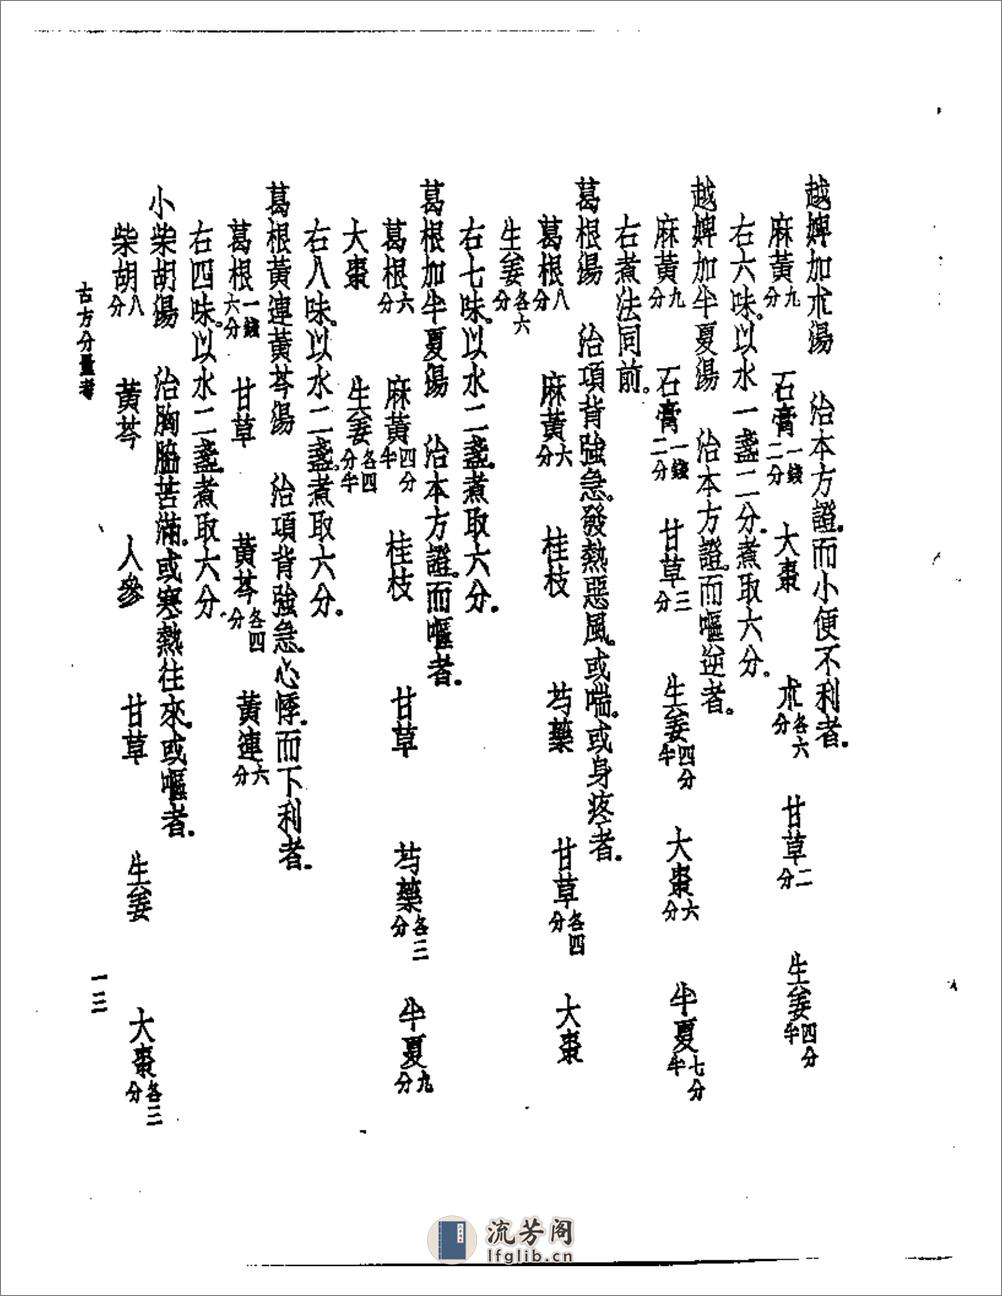 越婢加朮湯　治本方證。而小便不利者。
麻黃九分　石膏一錢二分　大棗　朮各六分　甘草二分　生姜四分半
右六味。以水一盞二分。煮取六分。
越婢加半夏湯　治本方證。而嘔逆者。
麻黃九分　石膏一錢二分　甘草三分　生姜四分半　大棗六分　半夏七分半
右煮法同前。
葛根湯　治項背強急。發熱惡風。或喘。或身疼者。
葛根八分　麻黃六分　桂枝　芍藥　甘草各四分　大棗
生姜各六分
右七味。以水二盞。煮取六分。
葛根加半夏湯　治本方證。而嘔者。
葛根六分　麻黃四分半　桂枝　甘草　芍藥各三分　半夏九分
大棗　生姜各四分半
右八味。以水二盞。煮取六分。
葛根黃連黃芩湯　治項背強急。心悸。而下利者。
葛根一錢六分　甘草　黃芩各四分　黃連六分
右四味。以水二盞。煮取六分。
小柴胡湯　治胸脇苦滿。或寒熱往來。或嘔者。
柴胡八分　黃芩　人參　甘草　生姜　大棗各三分
古方分量考
一三
流芳阁
lfglib.cn